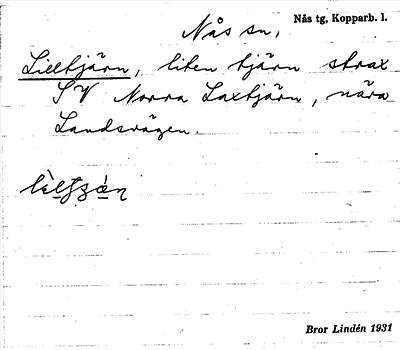 Nås sn,
Nås tg, Kopparb. l.
Lilltjärn, liten tjärn strax
SV Norra Laxtjärn, nära
Landsvägen.
Bror Lindén 1931